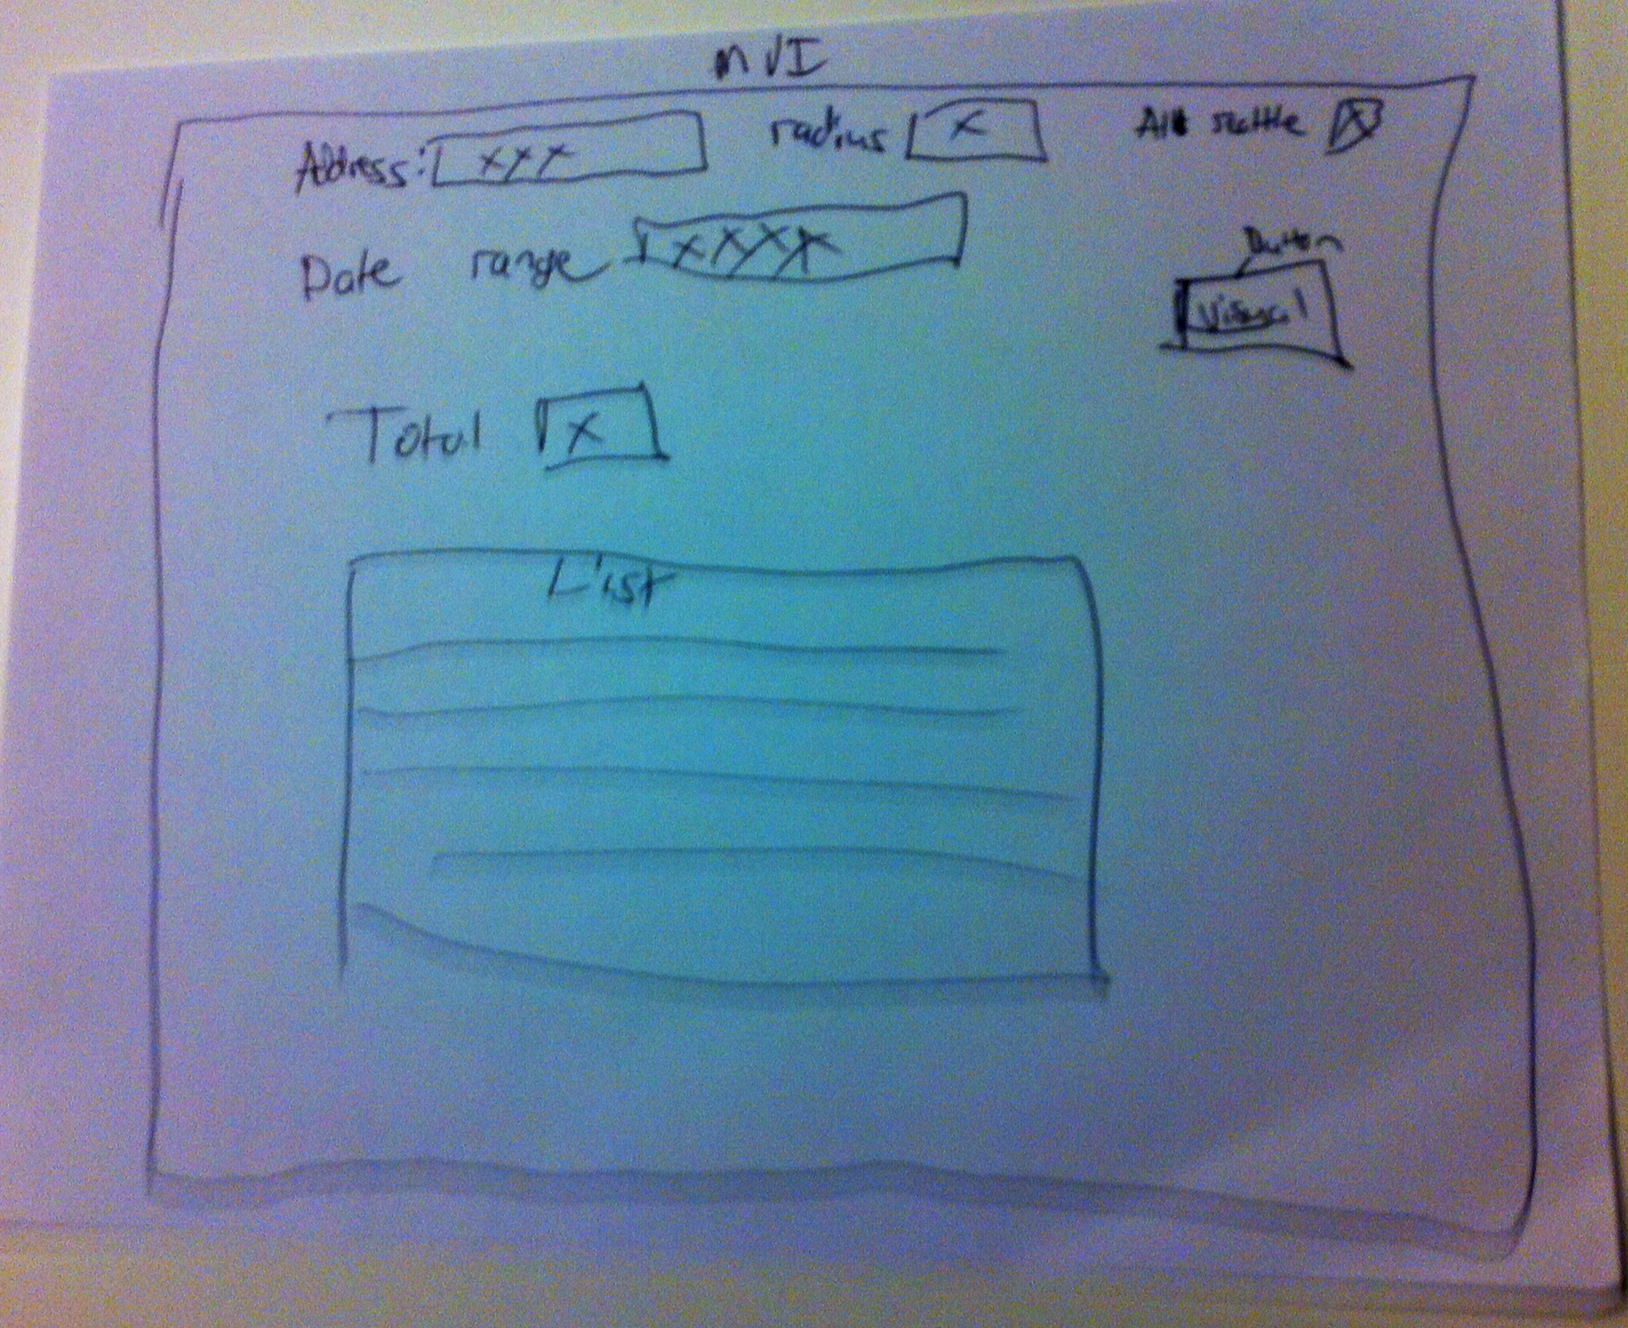 MVI
Address: XXX radius X All seattle X
Date range XXXX
Button
Visual
Total X
List